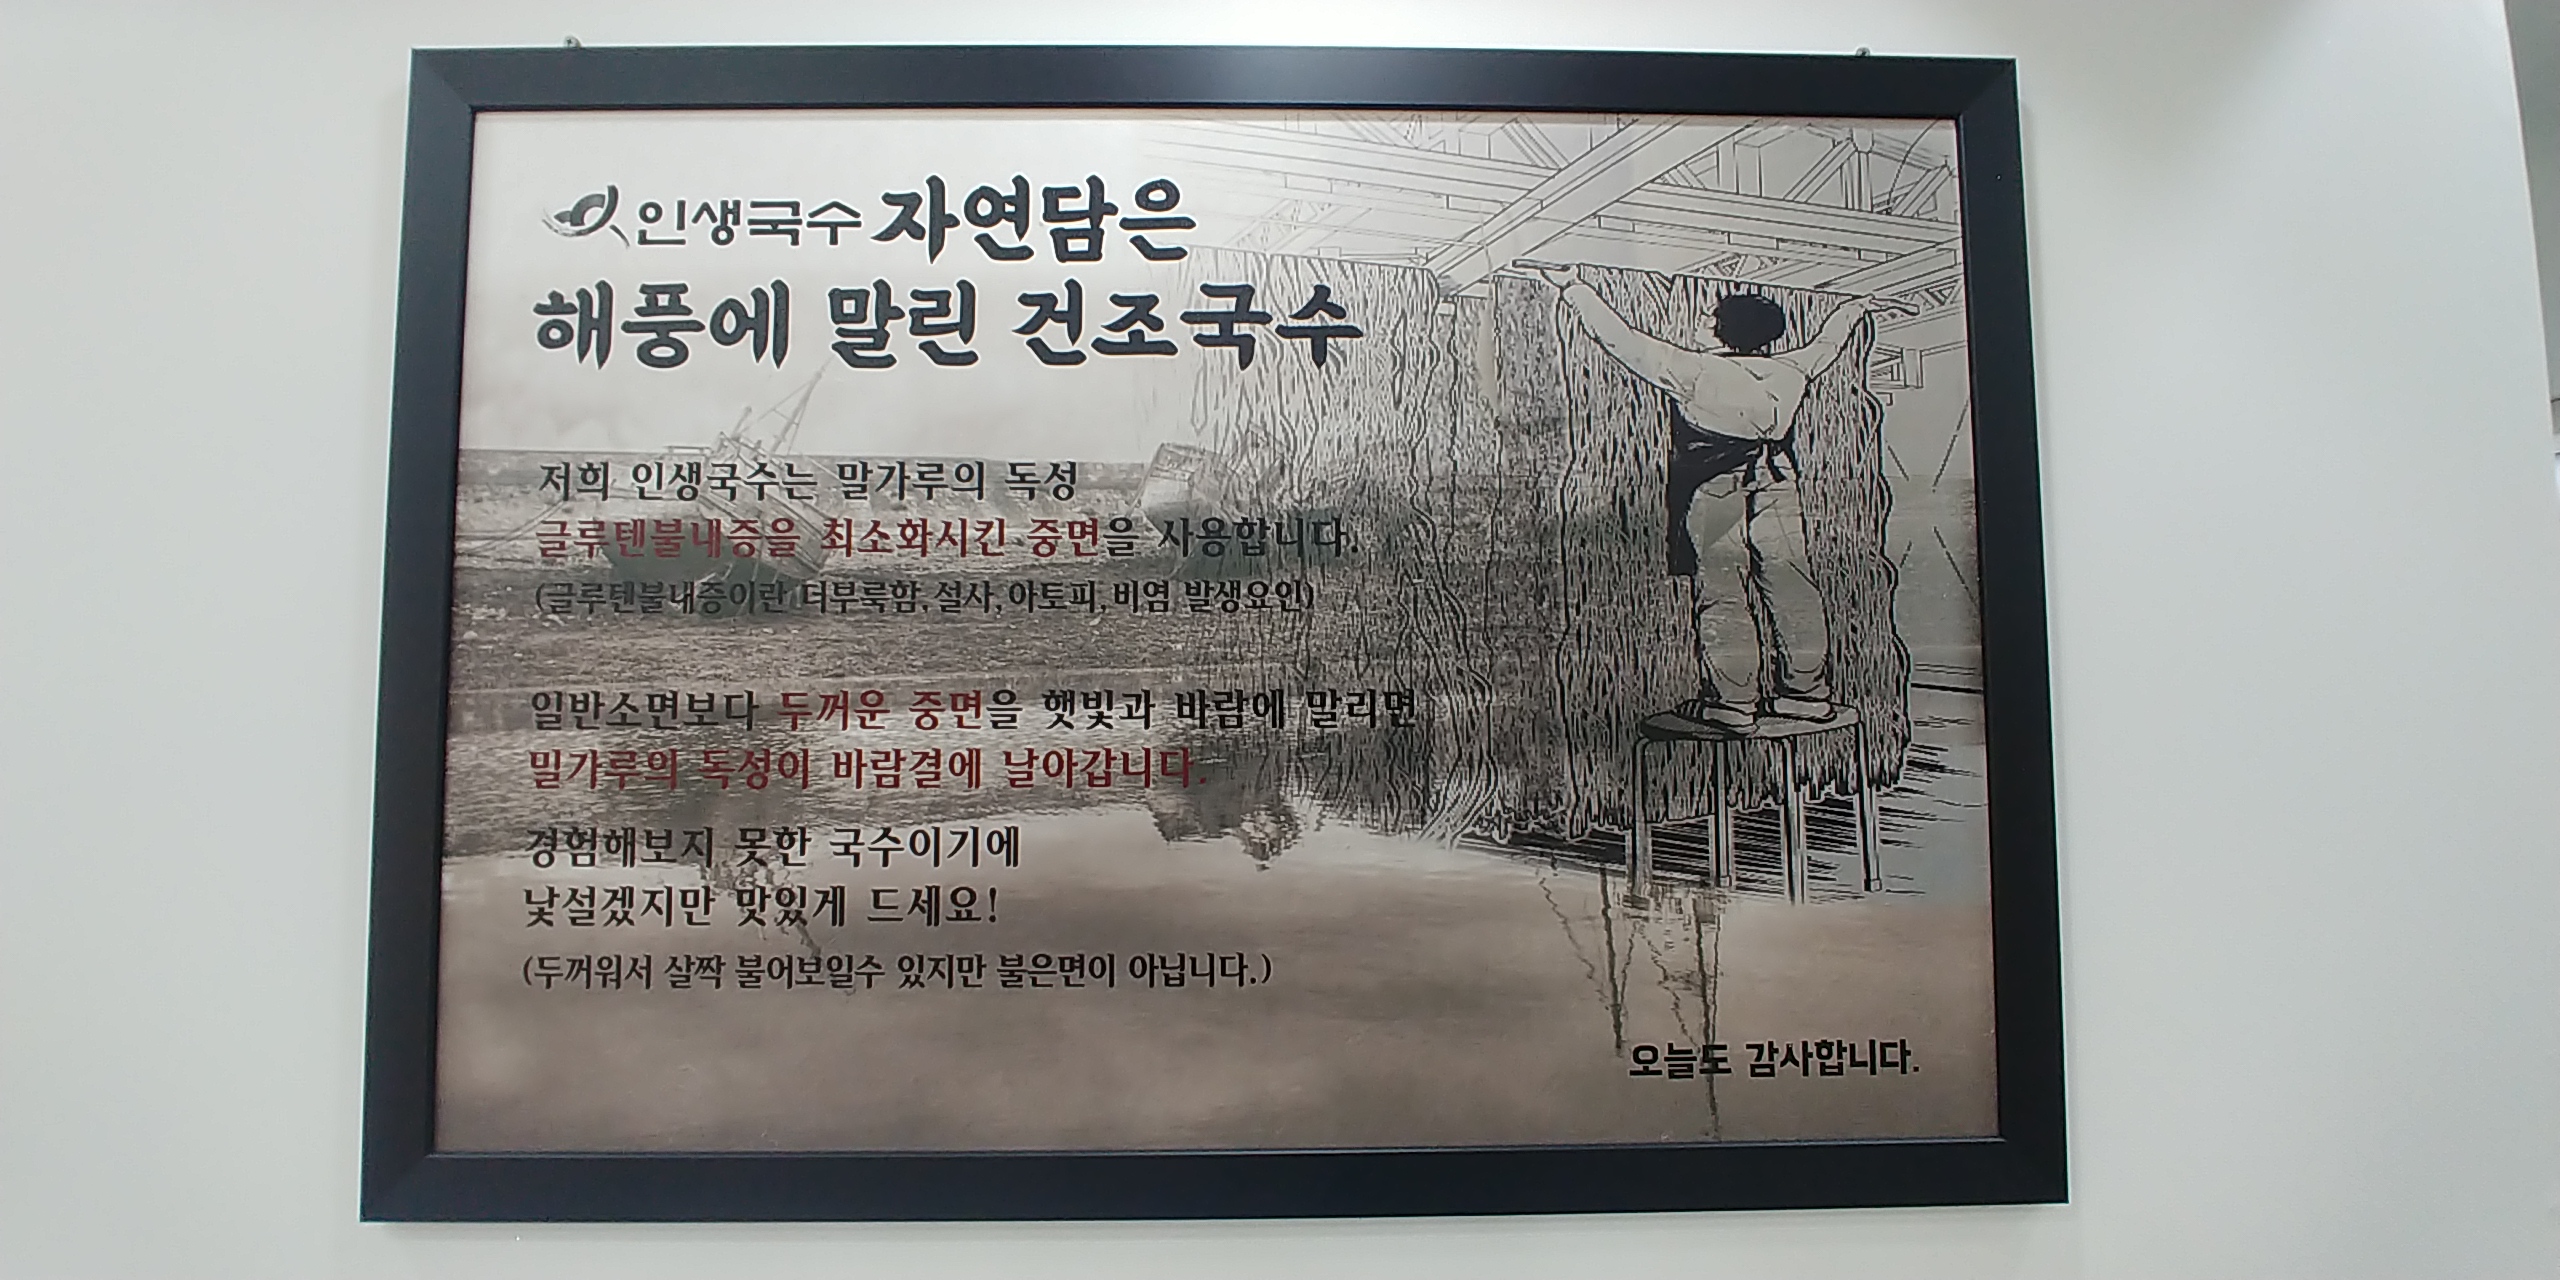 인생국수 자연담은
해풍에 말린 건조국수
저희 인생국수는 말가루의 독성
글루텐불내증을 최소화시킨 중면을 사용합니다.
(글루텐불내증이란 더부룩함, 설사, 아토피, 비염 발생요인)
일반소면보다 두꺼운 중면을 햇빛과 바람에 말리면
밀가루의 독성이 바람결에 날아갑니다.
경험해보지 못한 국수이기에
낯설겠지만 맛있게 드세요!
(두꺼워서 살짝 불어보일수 있지만 불은면이 아닙니다.)
오늘도 감사합니다.